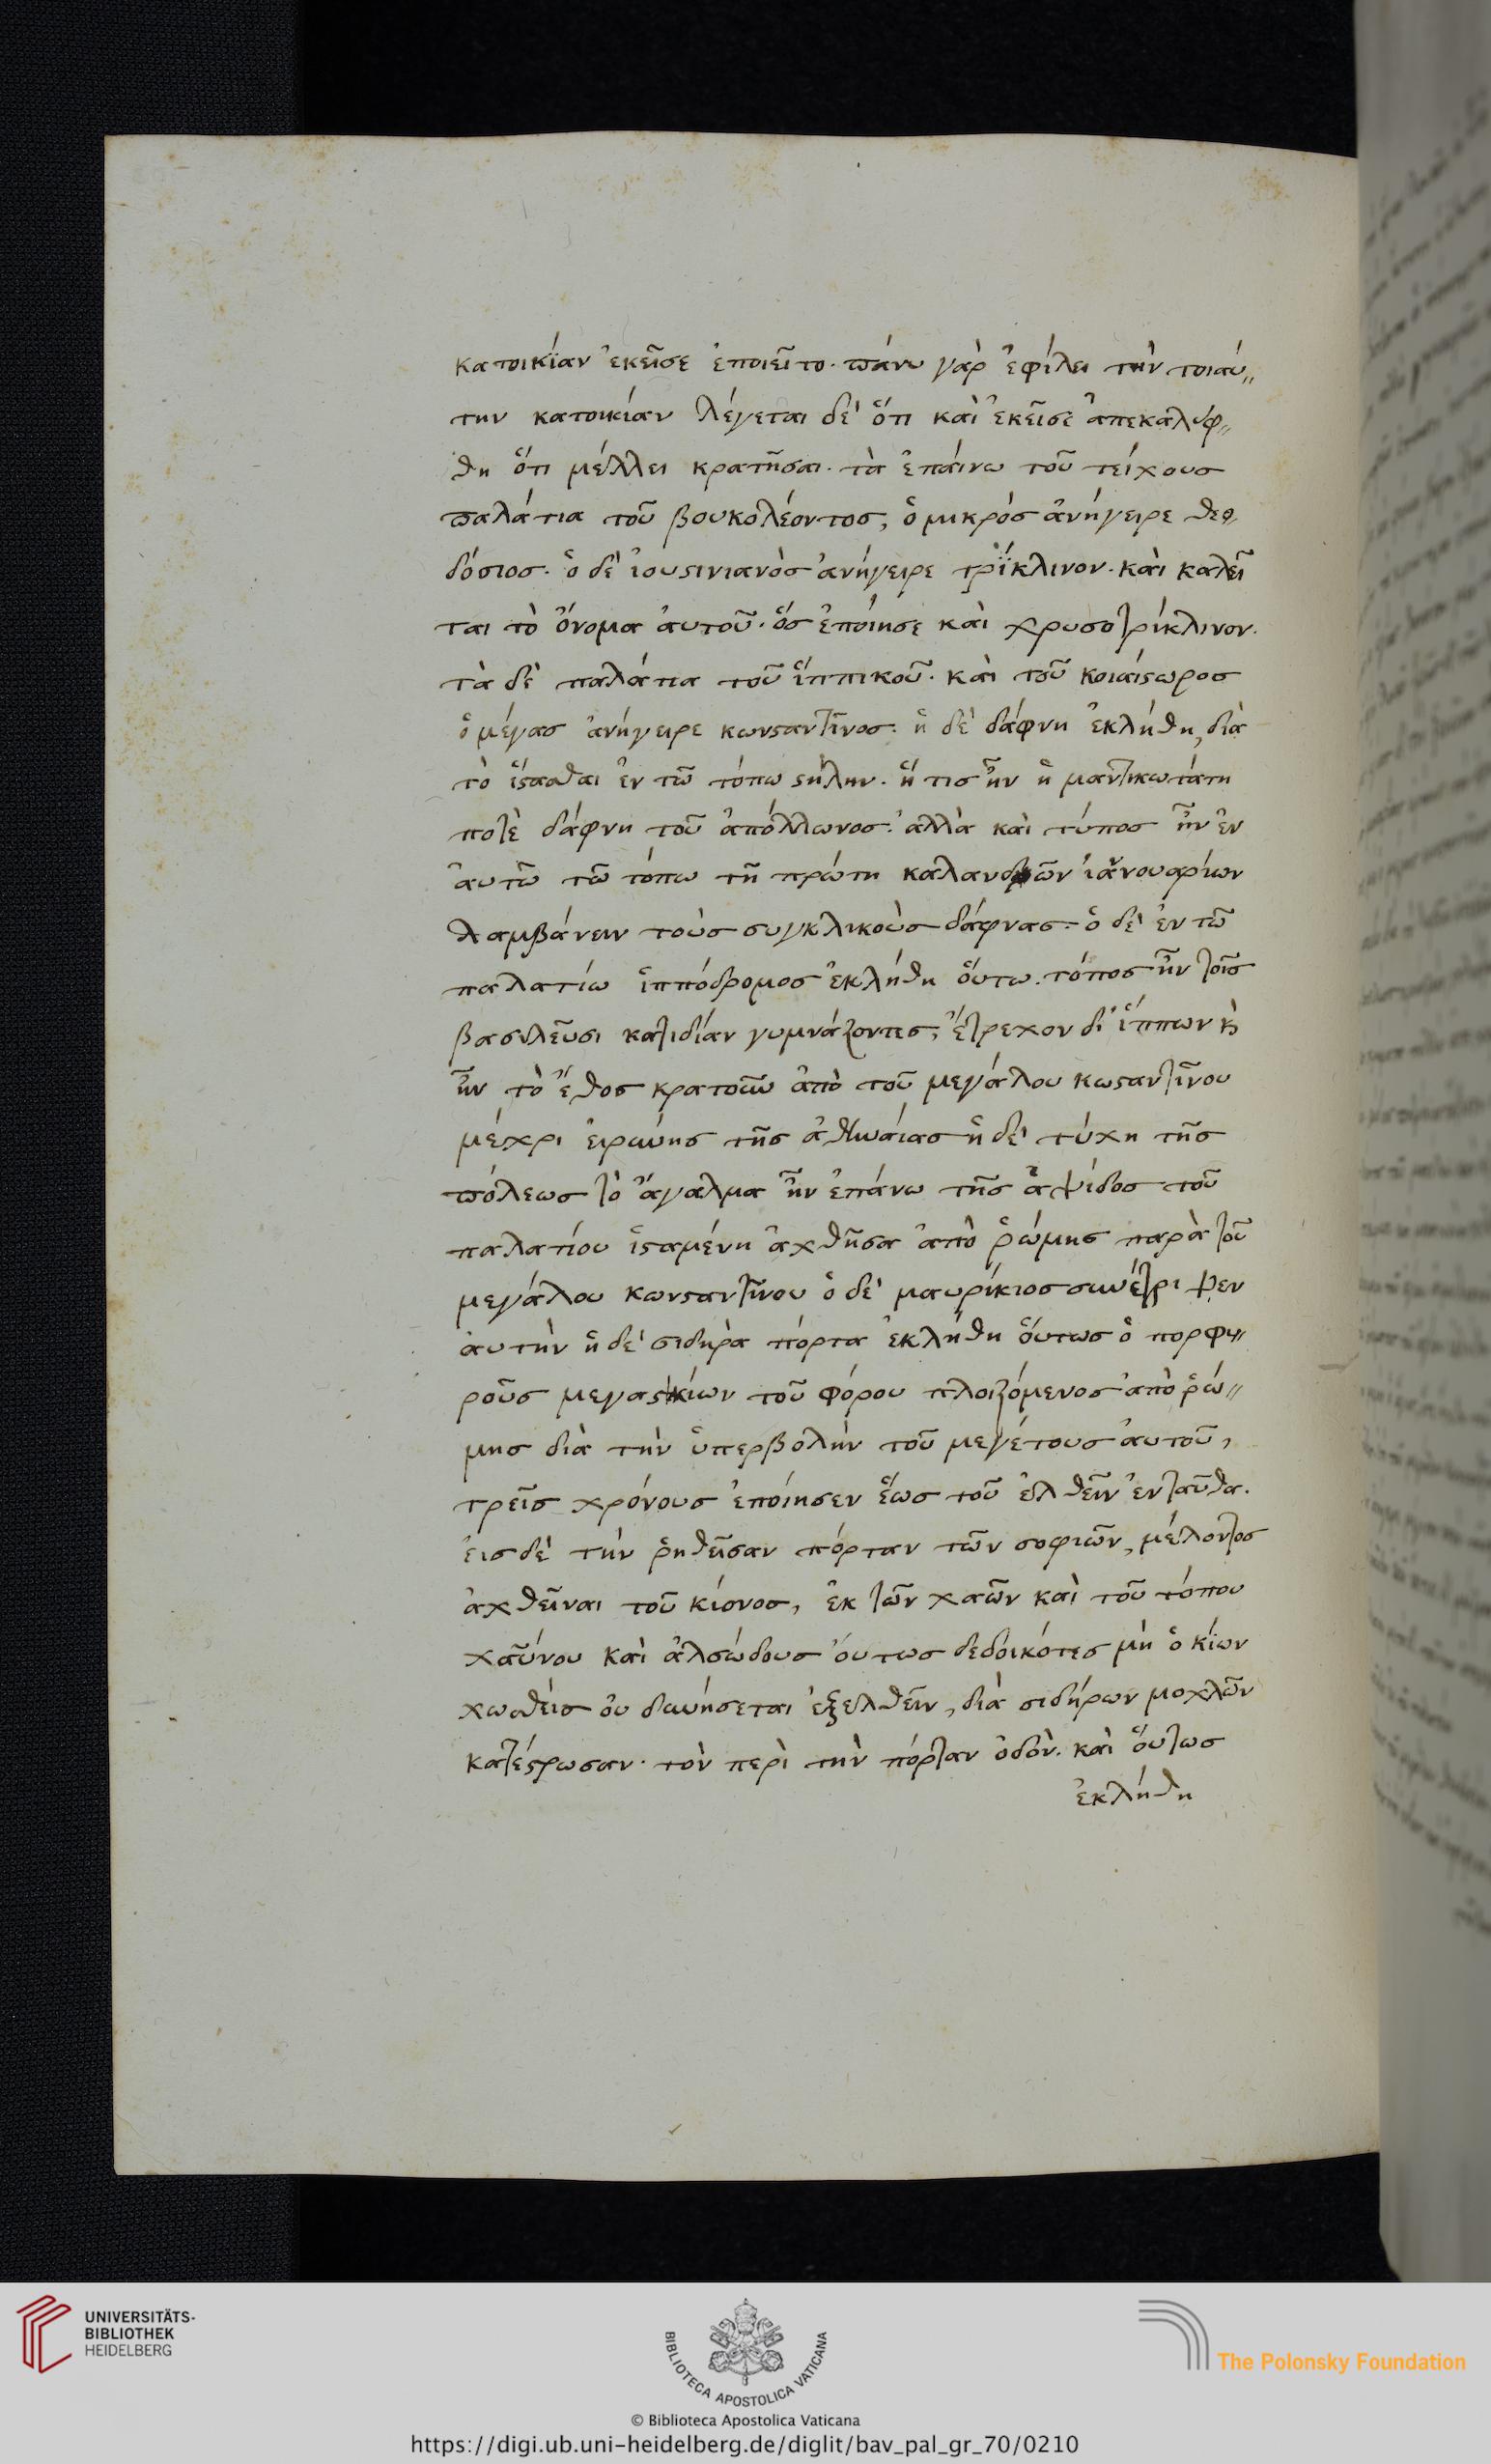 κατοικίαν ἐκεῖσε ἐποιεῖτο. πάνυ γὰρ ἐφίλει τὴν τοιάυ,,
την κατοικίαν λέγεται δὲ ὅτι καὶ ἐκεῖσε ἀπεκαλύφ,,
θη ὅτι μέλλει κρατῆσαι. τὰ ἐπάινω τοῦ τείχους
παλάτια τοῦ βουκολέοντος, ὁ μικρὸς ἀνήγειρε θεο
δόσιος. ὁ δὲ ἰουϛινιανὸς ἀνήγειρε τρΐκλινον. καὶ καλεῖ
ται τὸ ὄνομα ἀυτοῦ. ὅς ἐποίησε καὶ χρυσοτρίκλινον.
τὰ δὲ παλάτια τοῦ ἱππικοῦ. καὶ τοῦ κοιαίϛωρος
ὁ μέγας ἀνήγειρε κωνϛαντῖνος. ἡ δὲ δάφνη ἐκλήθη, διὰ
τὸ ἵϛασθαι ἐν τῶ τόπω ϛήλην. ἥ τις ἦν ἡ μαντικωτάτη
ποτὲ δάφνη τοῦ ἀπόλλωνος. ἀλλὰ καὶ τύπος ἦν ἐν
ἀυτῶ τῶ τόπω τῆ πρώτη καλανδῶν ἰανουαρίων
λαμβάνειν τοὺς συγκλικοὺς δάφνας. ὁ δὲ ἐν τῶ
παλατίω ἱππόδρομος ἐκλήθη ὅυτω. τόπος ἦν τοῖς
βασιλεῦσι κατιδίαν γυμνάζοντες, ἔτρεχον δι' ἵππων κὶ
ἦν τὸ ἔθος κρατοῦν ἀπὸ τοῦ μεγάλου κωϛαντῖνου
μέχρι ἐιρήνης τῆς ἀθηνάιας ἡ δὲ τύχη τῆς
πόλεως τὸ ἄγαλμα ἦν ἐπάνω τῆς ἀψίδος τοῦ
παλατίου ἱϛαμένη ἀχθῆσα ἀπὸ ῥώμης παρὰ τοῦ
μεγάλου κωνϛαντίνου ὁ δὲ μαυρίκιος συνέτριψεν
ἀυτὴν ἡ δὲ σιδηρὰ πόρτα ἐκλήθη ὅυτως ὁ πορφυ,,
ροῦς μεγας κίων τοῦ φόρου πλοιζόμενος ἀπὸ ῥώ,,
μης διὰ τὴν ὑπερβολὴν τοῦ μεγέτους ἀυτοῦ,
τρεῖς χρόνους ἐποίησεν ἕως τοῦ ἐλθεῖν ἐνταῦθα.
ἐις δὲ τὴν ῥηθεῖσαν πόρταν τῶν σοφιῶν, μέλοντος
ἀχθεῖναι τοῦ κίονος, ἐκ τῶν χαῶν καὶ τοῦ τόπου
χαύνου καὶ ἀλσώδους ὄυτως δεδοικότες μὴ ὁ κΐων
χωθεὶς ὀυ δυνήσεται ἐξελθεῖν, διὰ σιδήρων μοχλῶν
κατέϛρωσαν. τὸν περὶ τὴν πόρταν ὁδὸν. καὶ ὅυτως
ἐκλήθη
UNIVERSITÄTS-
BIBLIOTHEK
HEIDELBERG
BIBLIOTECA APOSTOLICA VATICANA
The Polonsky Foundation
© Biblioteca Apostolica Vaticana
https://digi.ub.uni-heidelberg.de/diglit/bav_pal_gr_70/0210